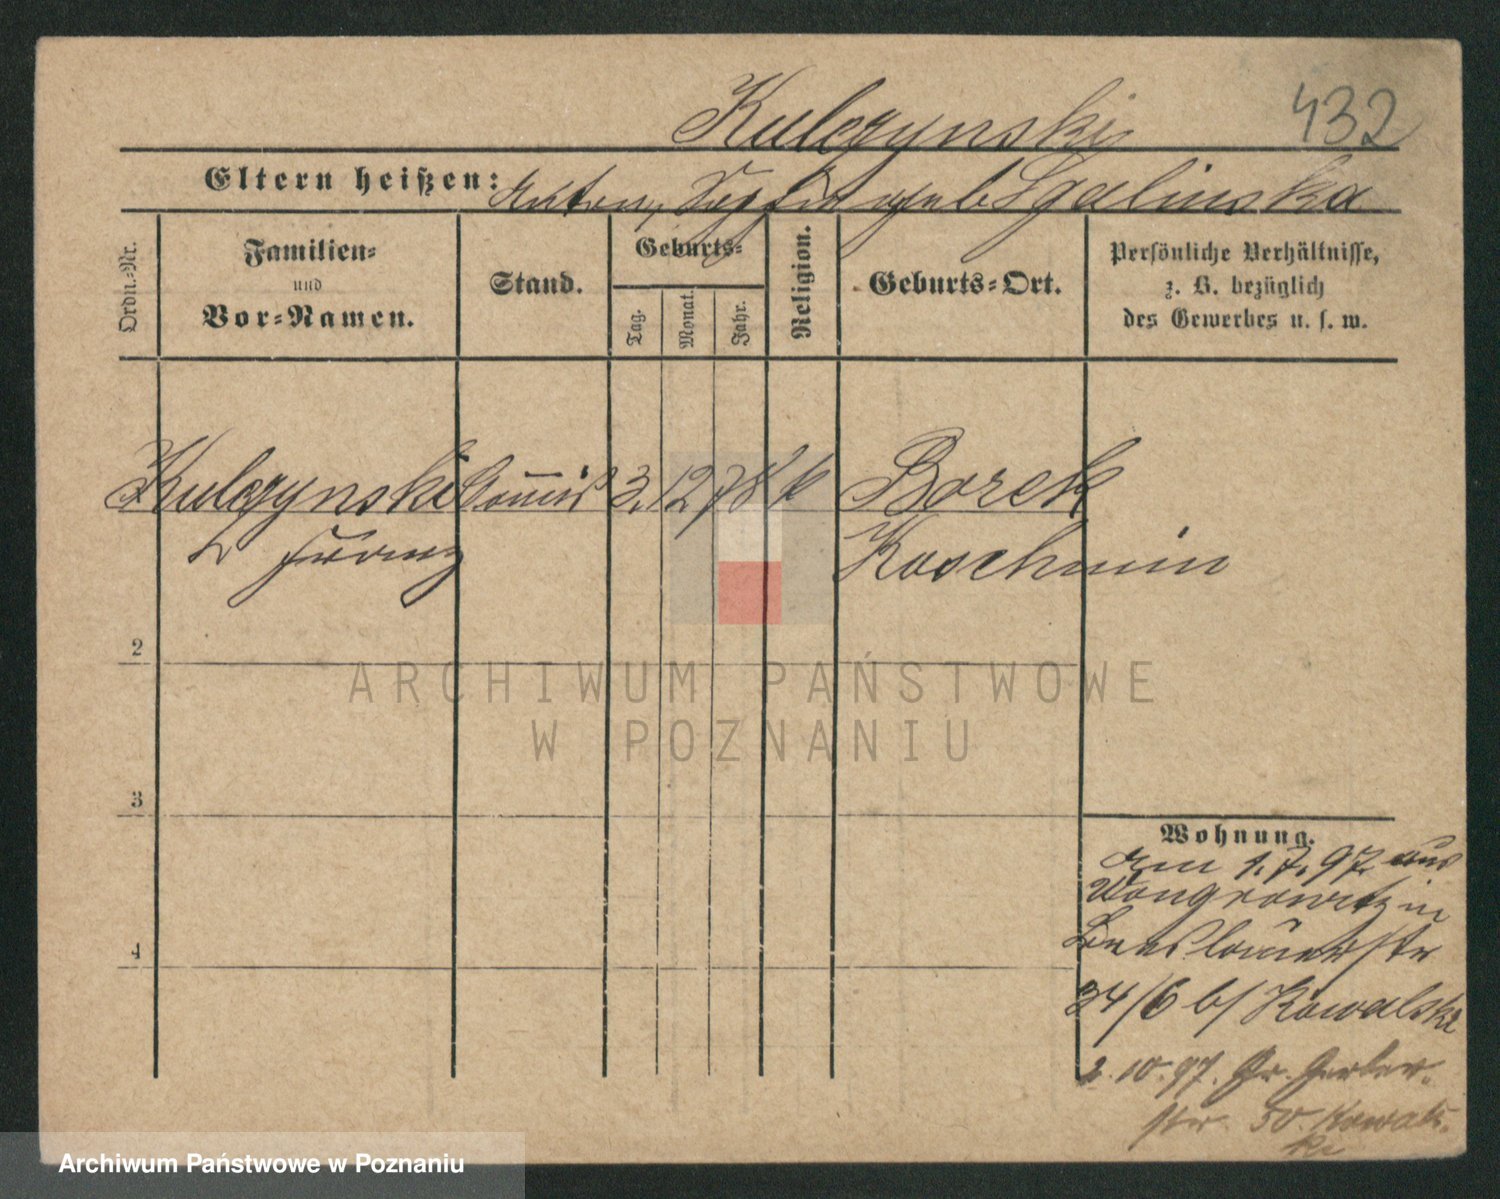 Kulczynski
432
Eltern heißen: Anton, Sophia geb Szalinska
Ordn.-Nr.
Familien-
und
Vor-Namen.
Stand.
Geburts-
Tag.
Monat.
Jahr.
Religion.
Geburts-Ort.
Persönliche Verhältnisse,
z. B. bezüglich
des Gewerbes u. s. w.
Kulczynski Commis 3. 12 78 k Borek
Franz Koschmin
2
3
4
ARCHIWUM PAŃSTWOWE
W POZNANIU
Wohnung.
am 1.7.97 aus
Wongrowitz in
Breslauerstr
34/6 b/ Kowalski
2.10.97. Gr. Gerber-
str. 50. Kowals-
ki
Archiwum Państwowe w Poznaniu